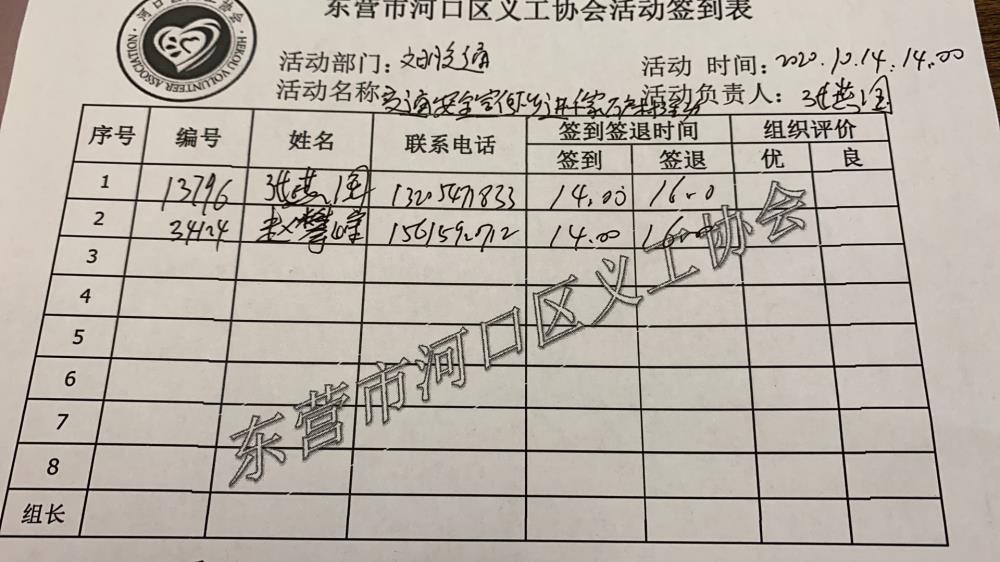 东营市河口区义工协会活动签到表
HEKOU VOLUNTEER ASSOCIATION
活动部门：文明交通
活动 时间：2020.10.14.14.00
活动名称：交通安全宣传
活动负责人：张燕国
序号 编号 姓名 联系电话 签到签退时间 组织评价
签到 签退 优 良
1 13796 张燕国 13205471833 14.00 16.0
2 34124 赵攀峰 14.00 16.00
3
4
5
6
7
8
组长
东营市河口区义工协会